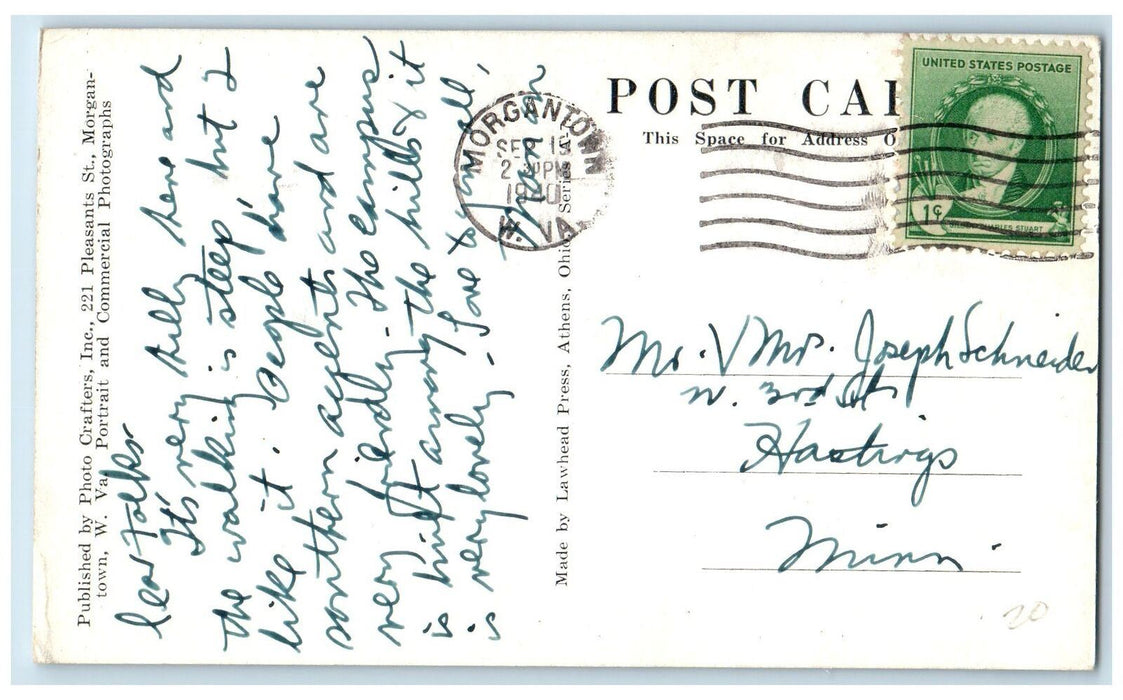 Published by Photo Crafters, Inc., 221 Pleasants St., Morgan-
town, W. Va. Portrait and Commercial Photographs
Dear Folks
It's very hilly here and
the walking is steep but I
like it. People have
southern accents and are
very friendly. The campus
is built among the hills & it
is very lovely - Love to you all,
Made by Lawhead Press, Athens, Ohio. Series A-
POST CAR
This Space for Address O
MORGANTOWN
SEP 15
2 PM
1940
W. VA.
UNITED STATES POSTAGE
1¢
GILBERT CHARLES STUART
Mr. & Mrs. Joseph Schneider
W. 3rd St
Hastings
Minn.
20